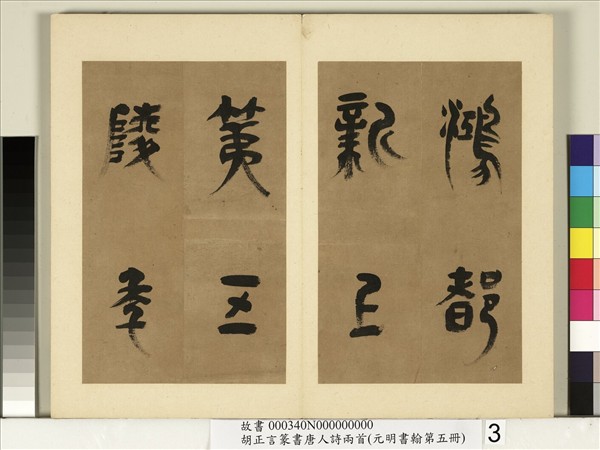 鴻都
新上
第五
陵年
故書 000340N000000000
胡正言篆書唐人詩兩首(元明書翰第五冊)
3